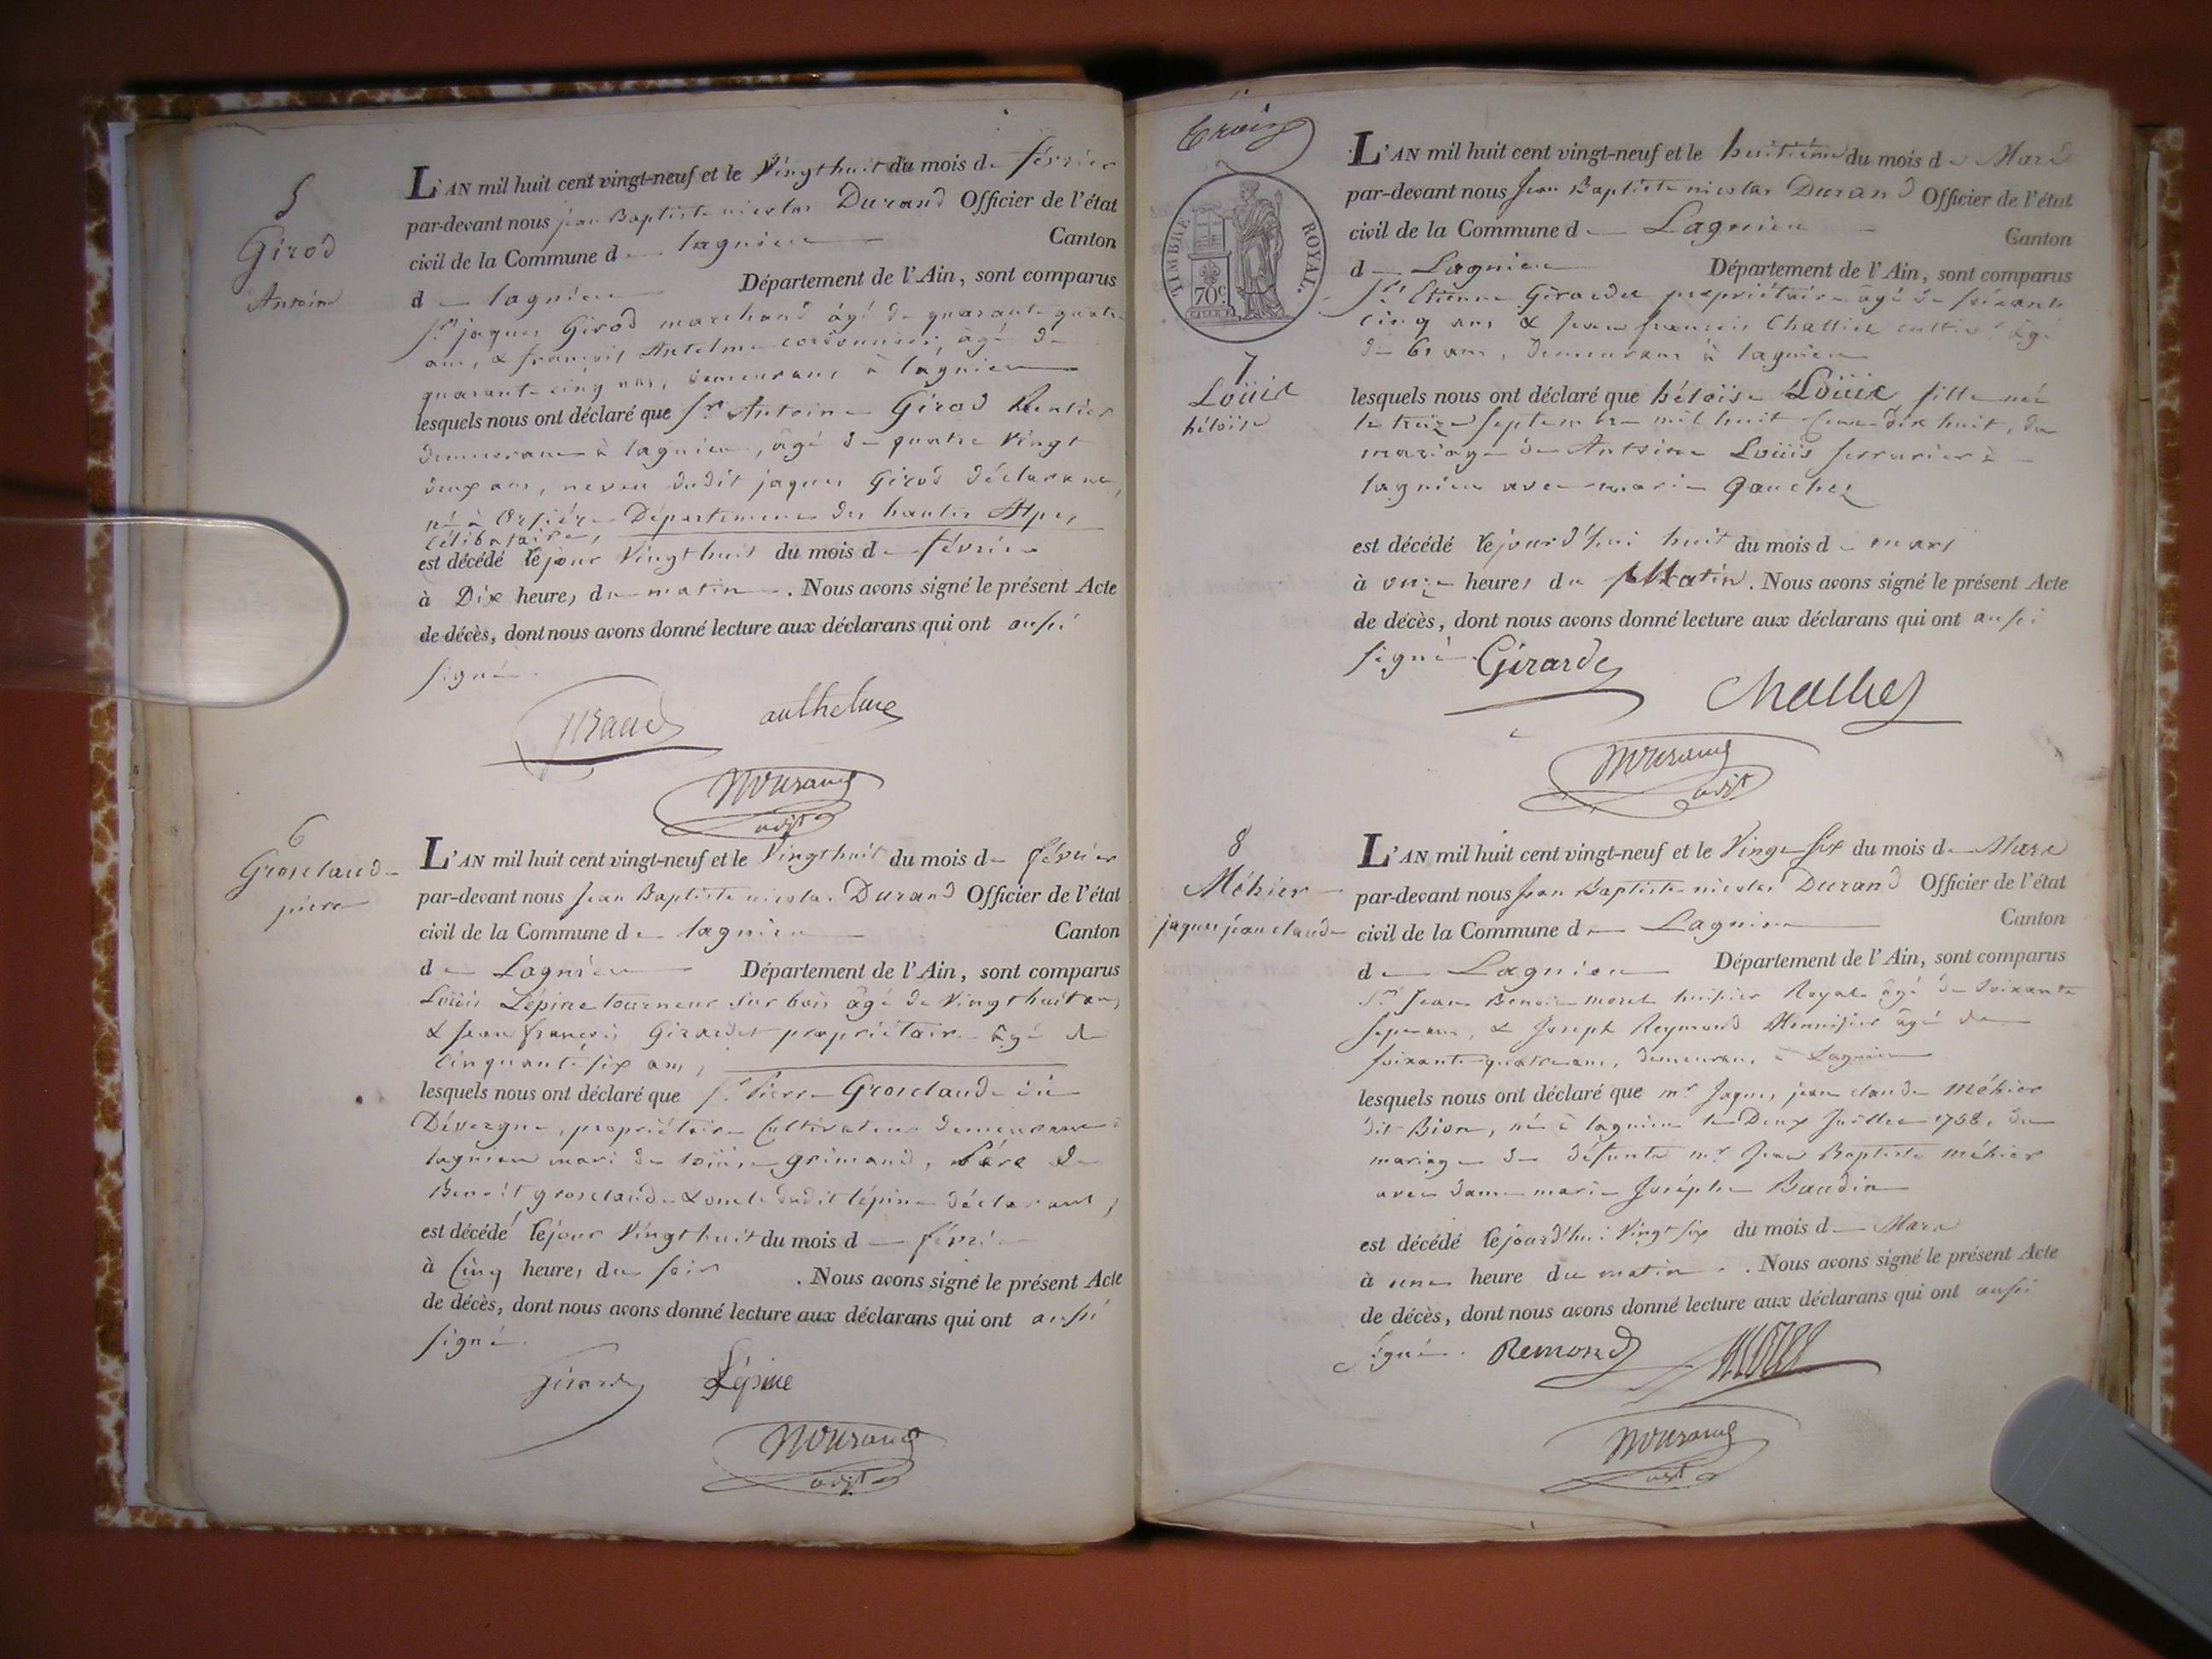 5
Girod
Antoine
L'AN mil huit cent vingt-neuf et le Vingt huit du mois de février
par-devant nous jean Baptiste nicolas Durand Officier de l'état
civil de la Commune de lagnieu Canton
de lagnieu Département de l'Ain, sont comparus
Sr. jaques Girod marchand âgé de quarante quatre
ans, & françois Antelme cordonnier, âgé de
quarante cinq ans, demeurans à lagnieu
lesquels nous ont déclaré que Sr. Antoine Girod Rentier
demeurant à lagnieu, âgé de quatre Vingt
deux ans, neveu dudit jaques Girod déclarant,
né à Orsière Département des hautes Alpes,
célibataire,
est décédé le jour Vingt huit du mois de février
à Dix heures du matin. Nous avons signé le présent Acte
de décès, dont nous avons donné lecture aux déclarans qui ont aussi
signé.
Giraud anthelme
NDurand
adjt
6
Grosclaude
pierre
L'AN mil huit cent vingt-neuf et le Vingt huit du mois de février
par-devant nous Jean Baptiste nicolas Durand Officier de l'état
civil de la Commune de lagnieu Canton
de Lagnieu Département de l'Ain, sont comparus
Loüis Lépine tourneur sur bois âgé de Vingt huit ans,
& Jean françois Girardet propriétaire âgé de
Cinquante six ans,
lesquels nous ont déclaré que Sr. Pierre Grosclaude dit
Dévergne, propriétaire Cultivateur demeurant à
lagnieu mari de Loüise Grimand, Père de
Benoit grosclaude & oncle dudit lépine déclarant,
est décédé le jour Vingt huit du mois de février
à Cinq heures du soir. Nous avons signé le présent Acte
de décès, dont nous avons donné lecture aux déclarans qui ont aussi
signé.
Girardet Lépine
NDurand
adjt
trois
TIMBRE ROYAL.
70c
7
Loüis
héloïse
L'AN mil huit cent vingt-neuf et le huitième du mois de Mars
par-devant nous Jean Baptiste nicolas Durand Officier de l'état
civil de la Commune de Lagnieu Canton
de Lagnieu Département de l'Ain, sont comparus
Sr. Etienne Girardet propriétaire âgé de soixante
cinq ans & Jean françois Challiet cultivr. âgé
de 61 ans, demeurans à lagnieu
lesquels nous ont déclaré que héloïse Loüis fille née
le treize septembre mil huit cent dix huit, du
mariage de Antoine Loüis serrurier à
lagnieu avec marie Gauchez
est décédé le jourd'hui huit du mois de mars
à onze heures du Matin. Nous avons signé le présent Acte
de décès, dont nous avons donné lecture aux déclarans qui ont aussi
signé. Girardet
Challiez
NDurand
adjt
8
Méhier
jaques jean claude
L'AN mil huit cent vingt-neuf et le Vingt six du mois de Mars
par-devant nous Jean Baptiste nicolas Durand Officier de l'état
civil de la Commune de Lagnieu Canton
de Lagnieu Département de l'Ain, sont comparus
Sr. Jean Benoit morel huissier Royal âgé de soixante
sept ans, & Joseph Reymond Menuisier âgé de
soixante quatre ans, demeurans à Lagnieu
lesquels nous ont déclaré que mr. Jaques jean claude Méhier
dit Bion, né à lagnieu le Deux Juillet 1758, du
mariage de défunts mr. Jean Baptiste méhier
avec dame marie Joséphe Baudin
est décédé le jourd'hui Vingt six du mois de Mars
à une heure du matin. Nous avons signé le présent Acte
de décès, dont nous avons donné lecture aux déclarans qui ont aussi
signé. Remond Morel
NDurand
adjt